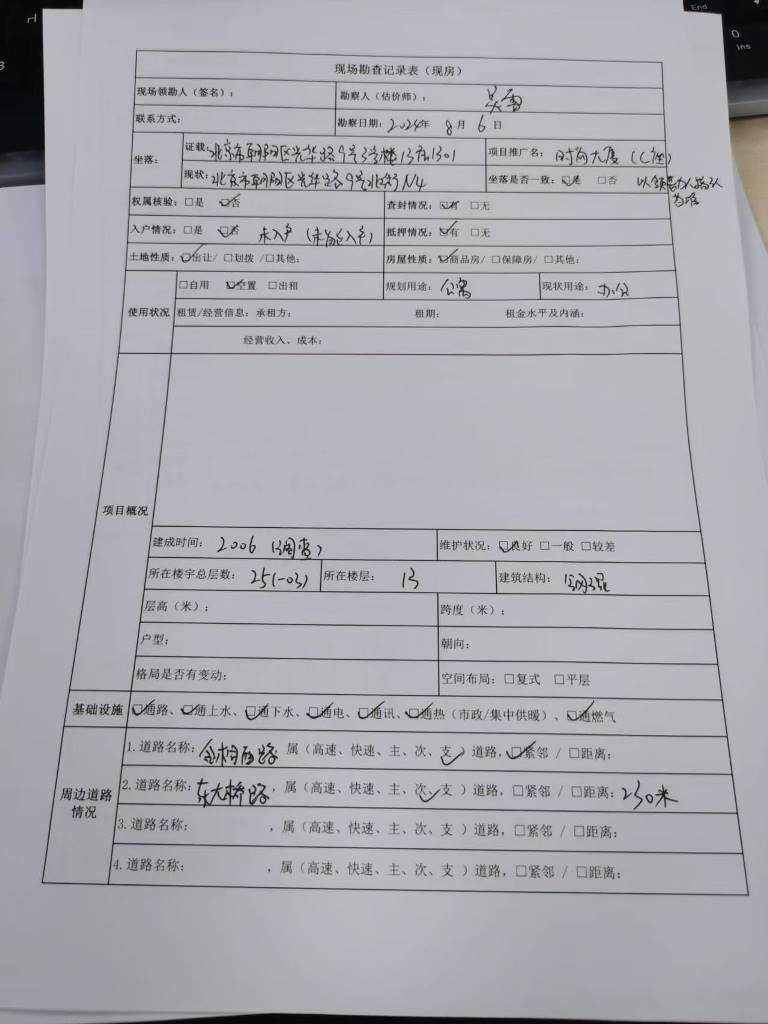 现场勘查记录表（现房）
现场领勘人（签名）： 勘察人（估价师）：
联系方式： 勘察日期：2024年 8 月 6 日
坐落： 证载：北京市朝阳区光华路9号3号楼13层1301 项目推广名：时尚大厦（C座）
现状：北京市朝阳区光华路9号北街N4 坐落是否一致：☑是 □否 以领勘人指认为准
权属核验：□是 ☑否 查封情况：☑有 □无
入户情况：□是 ☑否 未入户（未能入户） 抵押情况：☑有 □无
土地性质：☑出让/□划拨 /□其他： 房屋性质：☑商品房/□保障房/□其他：
使用状况 □自用 ☑空置 □出租 规划用途：公寓 现状用途：办公
租赁/经营信息：承租方： 租期： 租金水平及内涵：
经营收入、成本：
项目概况
建成时间：2006（调查） 维护状况：☑良好 □一般 □较差
所在楼宇总层数：25(-03) 所在楼层：13 建筑结构：钢混
层高（米）： 跨度（米）：
户型： 朝向：
格局是否有变动： 空间布局：□复式 □平层
基础设施 ☑通路、☑通上水、☑通下水、☑通电、☑通讯、☑通热（市政/集中供暖）、☑通燃气
周边道路情况
1.道路名称：金桐西路 属（高速、快速、主、次、支✓）道路，☑紧邻 / □距离：
2.道路名称：东大桥路，属（高速、快速、主、次✓、支）道路，□紧邻 / □距离：230米
3.道路名称： ，属（高速、快速、主、次、支 ）道路，□紧邻 / □距离：
4.道路名称： ，属（高速、快速、主、次、支 ）道路，□紧邻 / □距离：